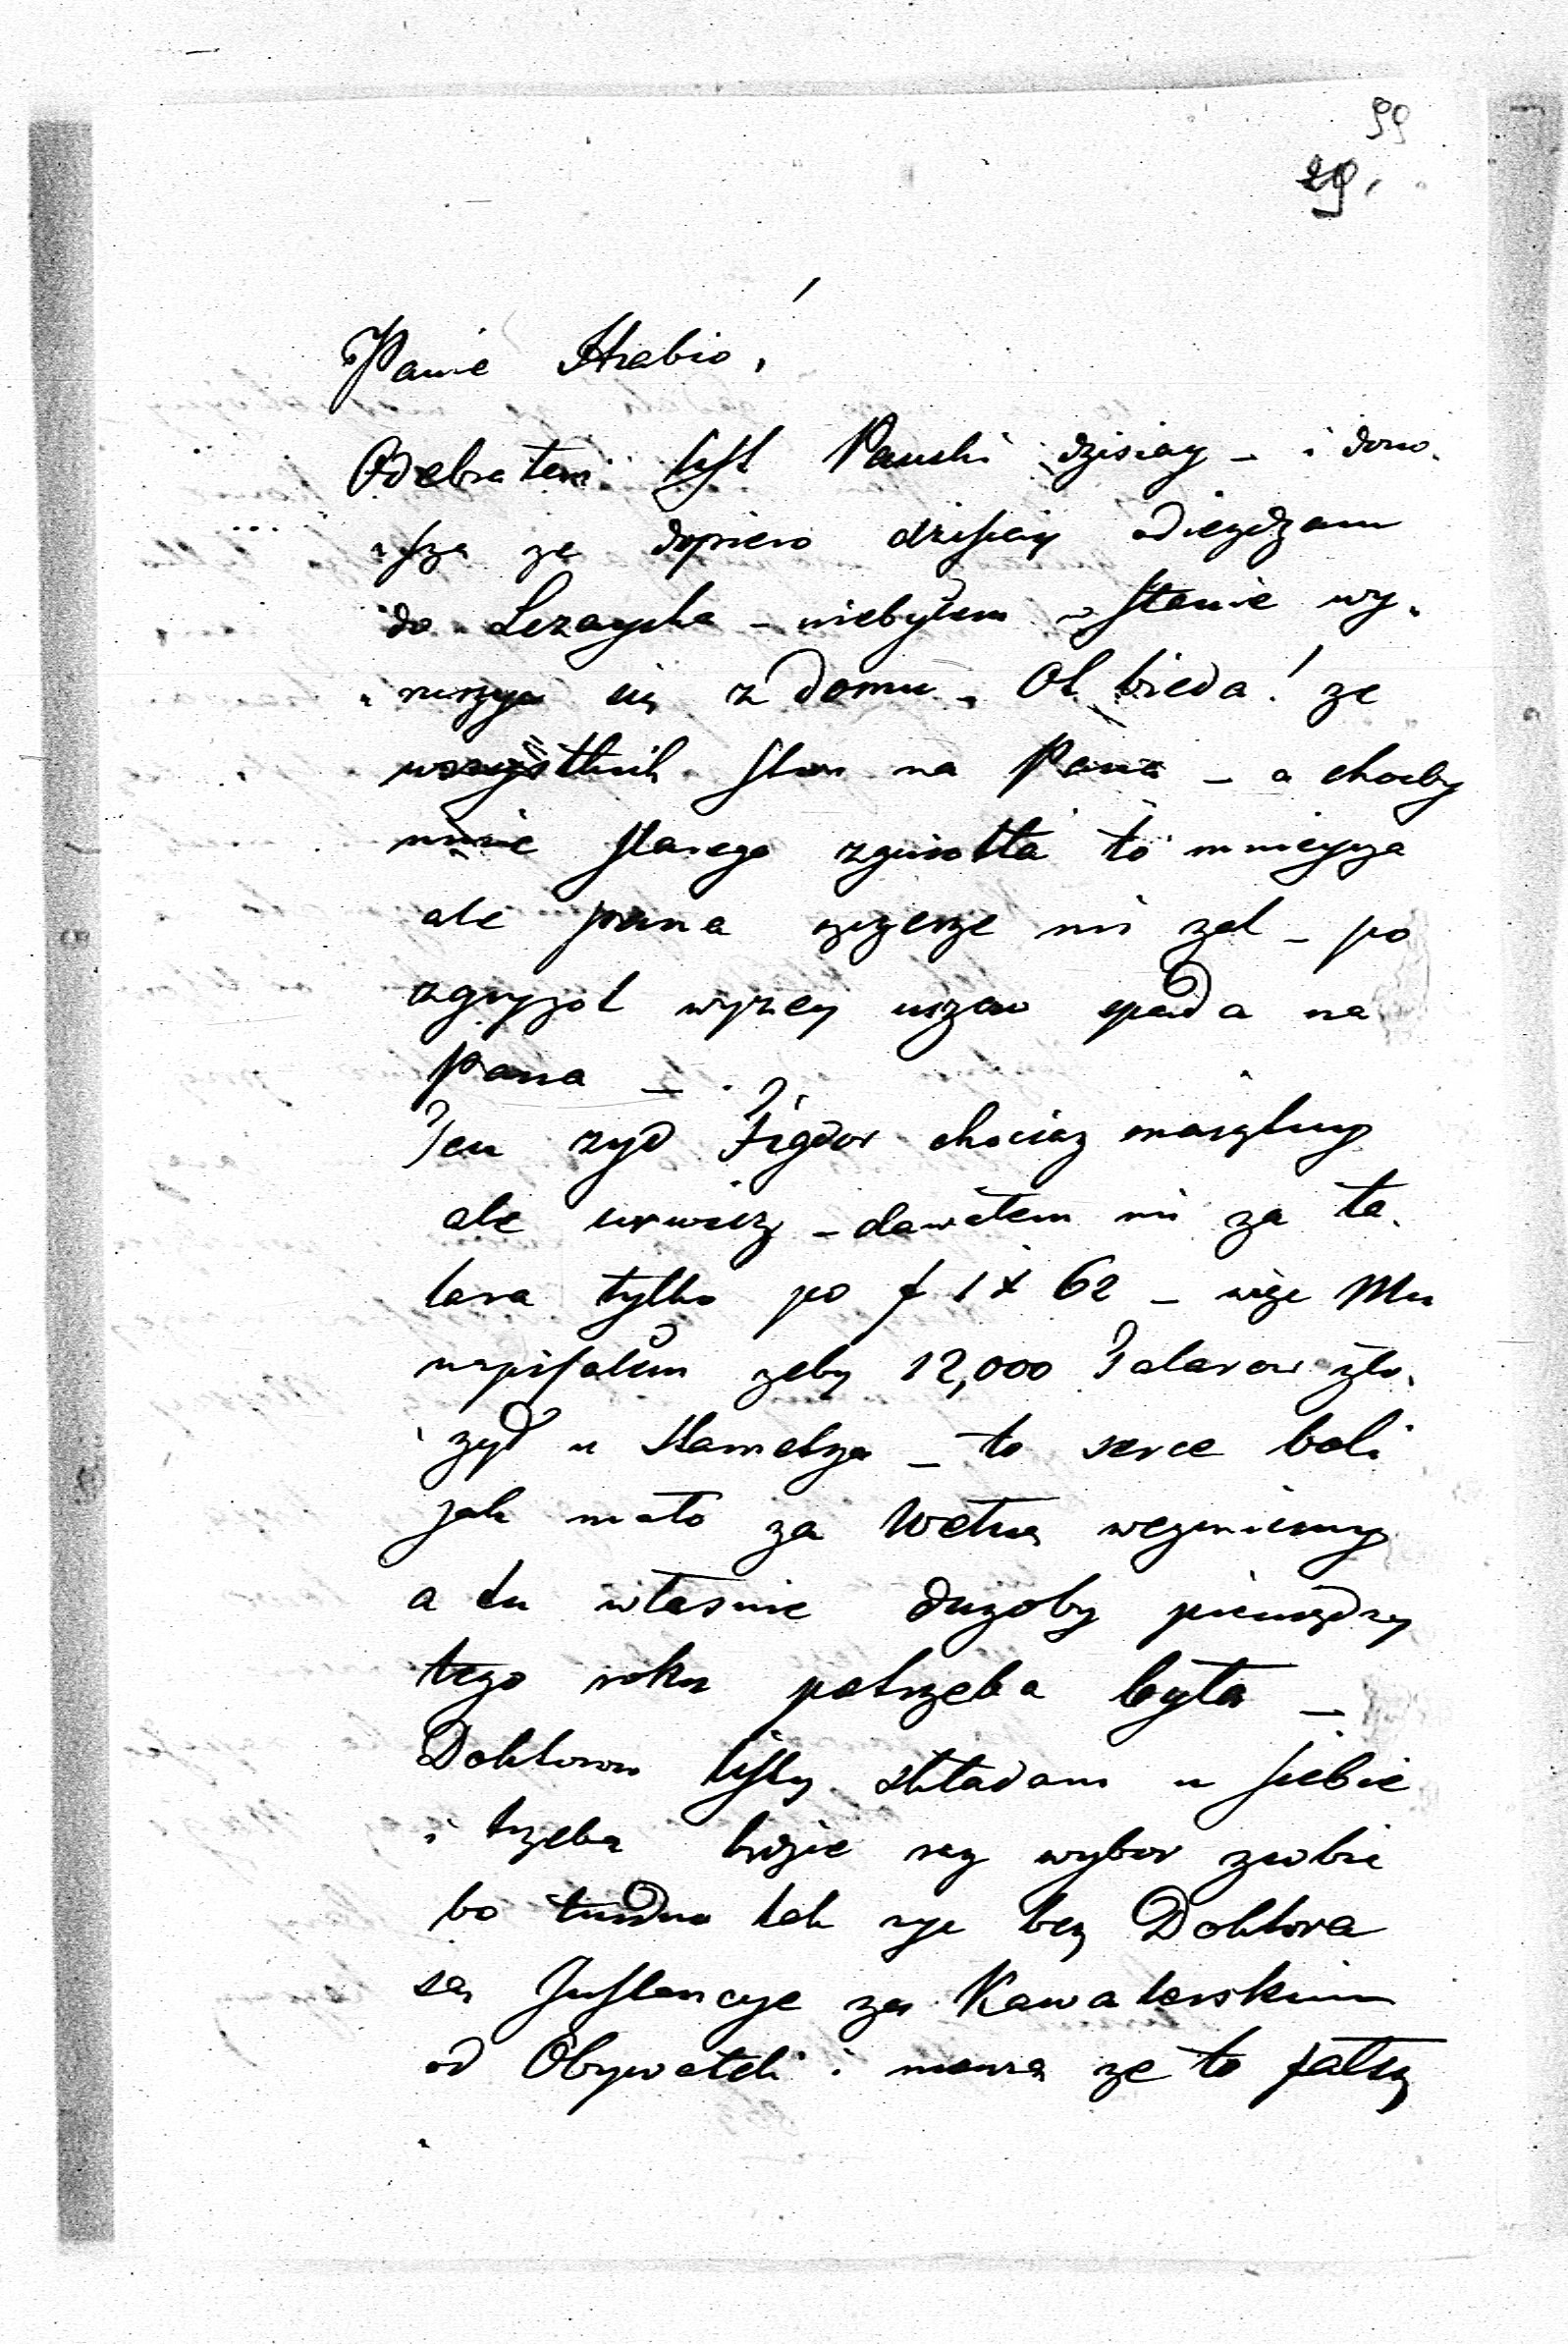 99
29,
Panie Hrabio,
Odebrałem list Pański dzisiay – i dono-
-szę ze dopiero dzisiay odiezdzam
do Lezayska – niebyłem w stanie wy-
-ruszyc się z domu. Oh bieda! ze
wszystkich stron na Pana – a chocby
mnie starego zgniotła to mnieysza
ale pana szczerze mi zal – po
zgryzot wyzey uszow spada na
Pana –
Ten zyd Figdor chociaz masgluy
ale urwisz – dawałem mi za ta-
lara tylko po f 1 x 62 – więc Mu
napisałem zeby 12,000 Talarow zło-
zył u Hameltza – to serce boli
jak mało za Wełnę wezmiemy
a tu własnie duzoby pieniędzy
tego roku potrzeba była –
Doktorow listy składam u siebie
i trzeba będzie raz wybor zrobic
bo trudno tak zyc bez Doktora
są Instancye za Kawalerskim
od Obywateli i mowią ze to fałsz